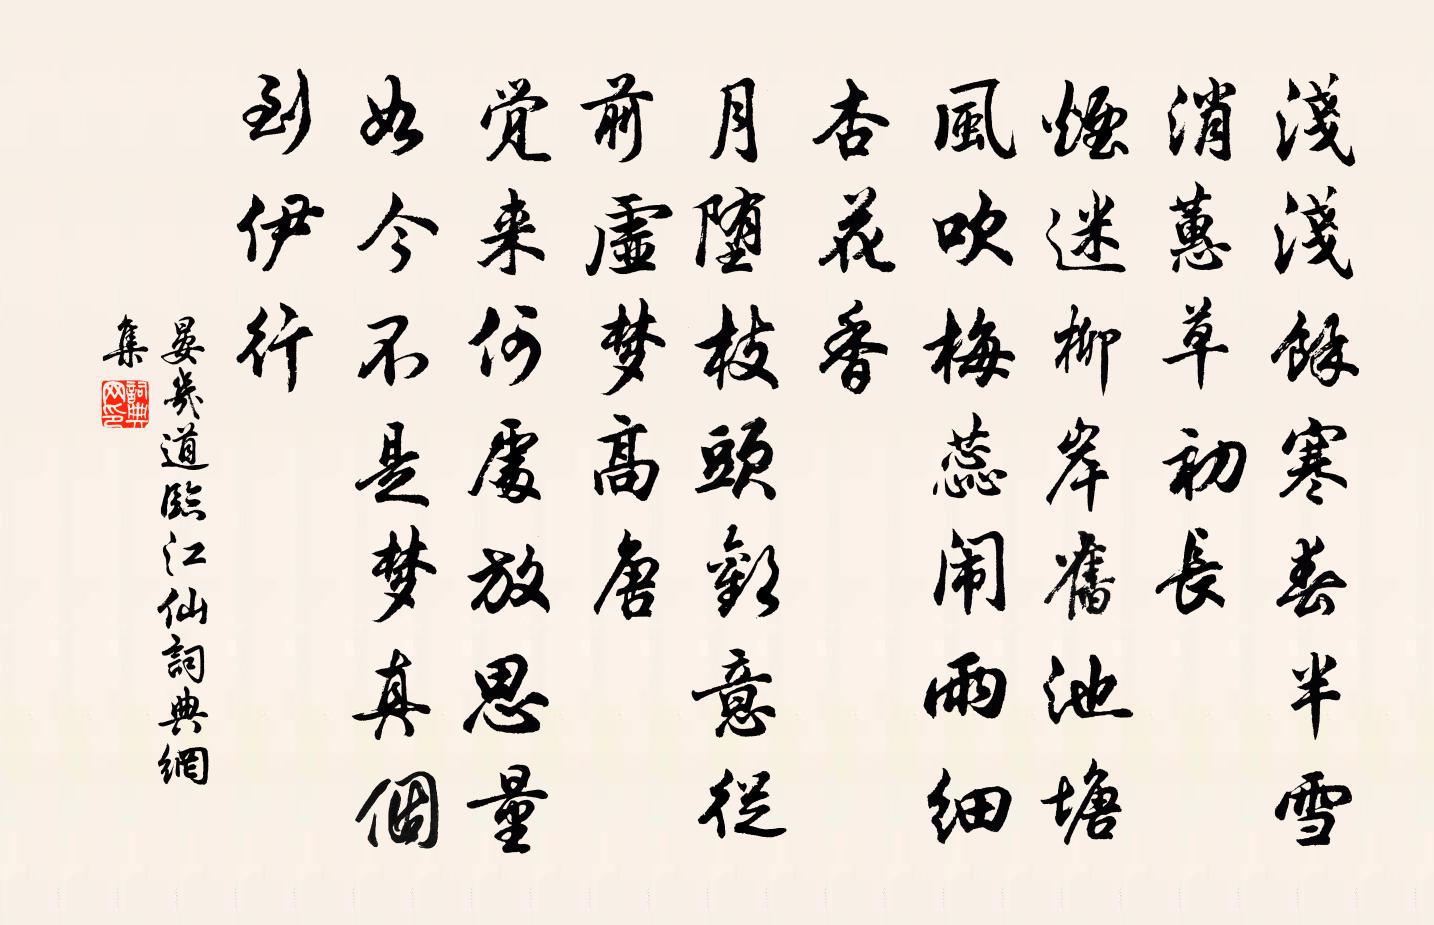 淺淺餘寒春半雪
消蕙草初長
煙迷柳岸舊池塘
風吹梅蕊闹雨细
杏花香
月堕枝頭歡意從
前虛梦高唐
觉来何處放思量
如今不是梦真個
到伊行
晏幾道臨江仙詞典網
集
詞典
网印